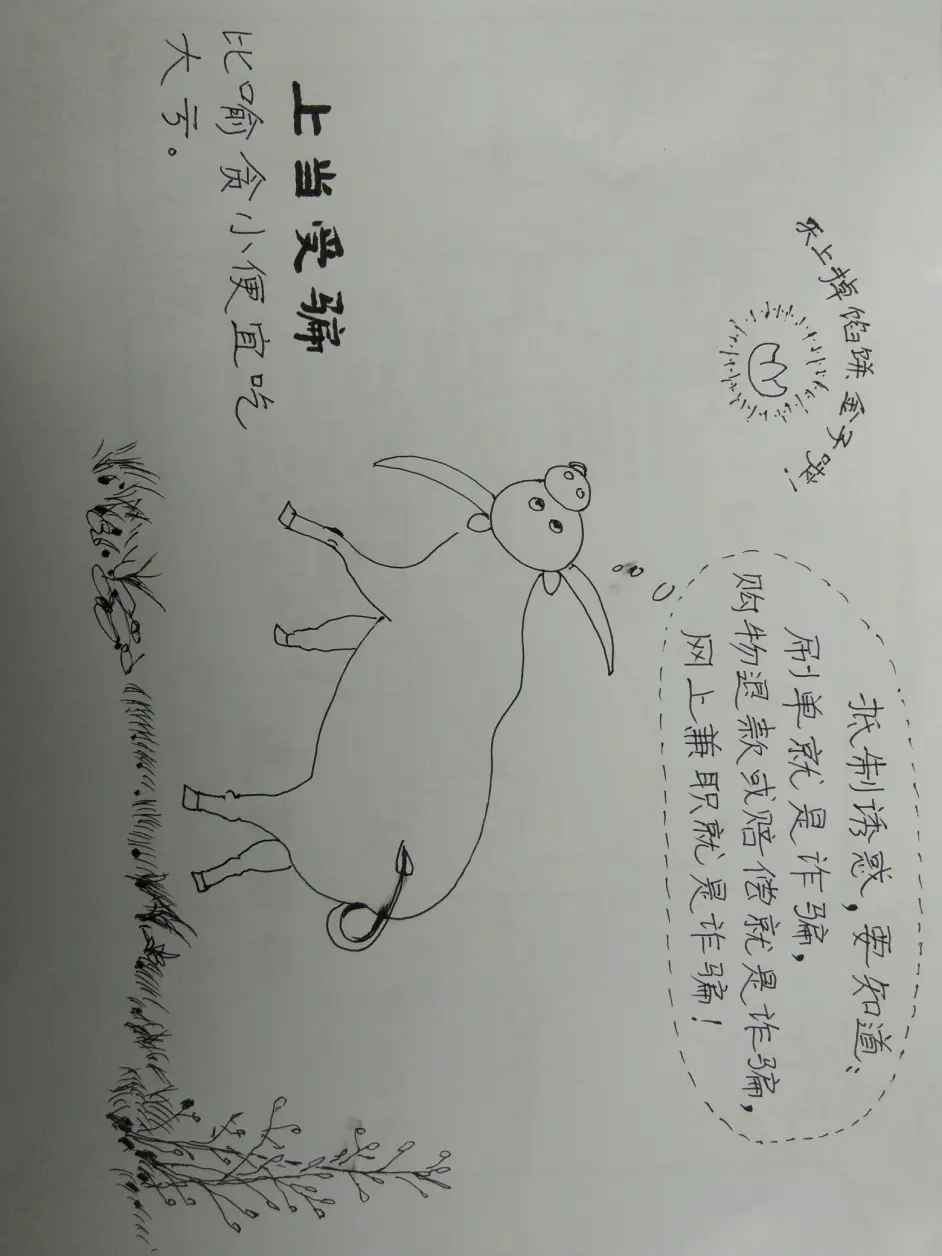 上掉馅饼金子啦!
抵制诱惑,要知道:
刷单就是诈骗,
购物退款或赔偿就是诈骗,
网上兼职就是诈骗!
上当受骗
比喻贪小便宜吃
大亏。